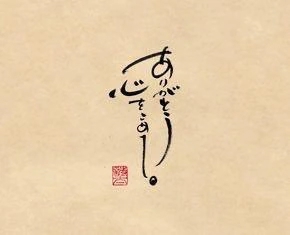 ありがとう
心をこめて